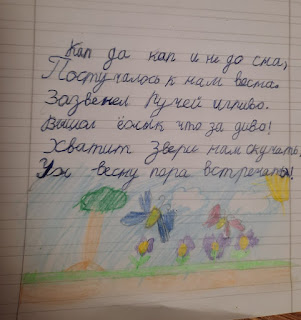 Кап да кап и не до сна,
Постучалась к нам весна.
Зазвенел Ручей игриво.
Вышел ёжык что за диво!
Хватит Звери нам скучать,
Уж весну пора встречать!